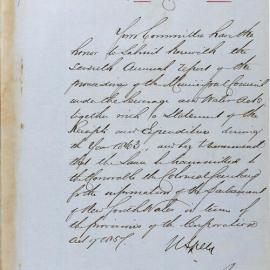 Your Committee have the
honor to Submit herewith the
Seventh Annual report of the
proceedings of the Municipal Council
under the Sewerage and Water Acts
together with a Statement of the
Receipts and Expenditure during
the Year 1863, and beg to recommend
that the Same be transmitted to
the Honorable the Colonial Secretary
for the information of the Parliament
of New South Wales in terms of
the provisions of the Corporation
Act of 1857.